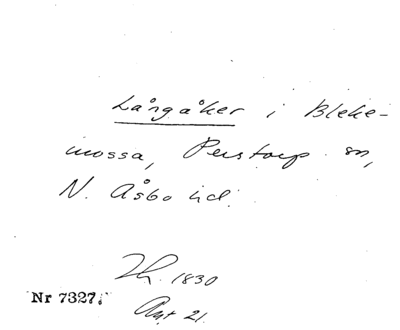 Långåker i Bleke-
mossa, Perstorp sn,
N. Åsbo hd.
1830
Nr 7327.
Akt 21.